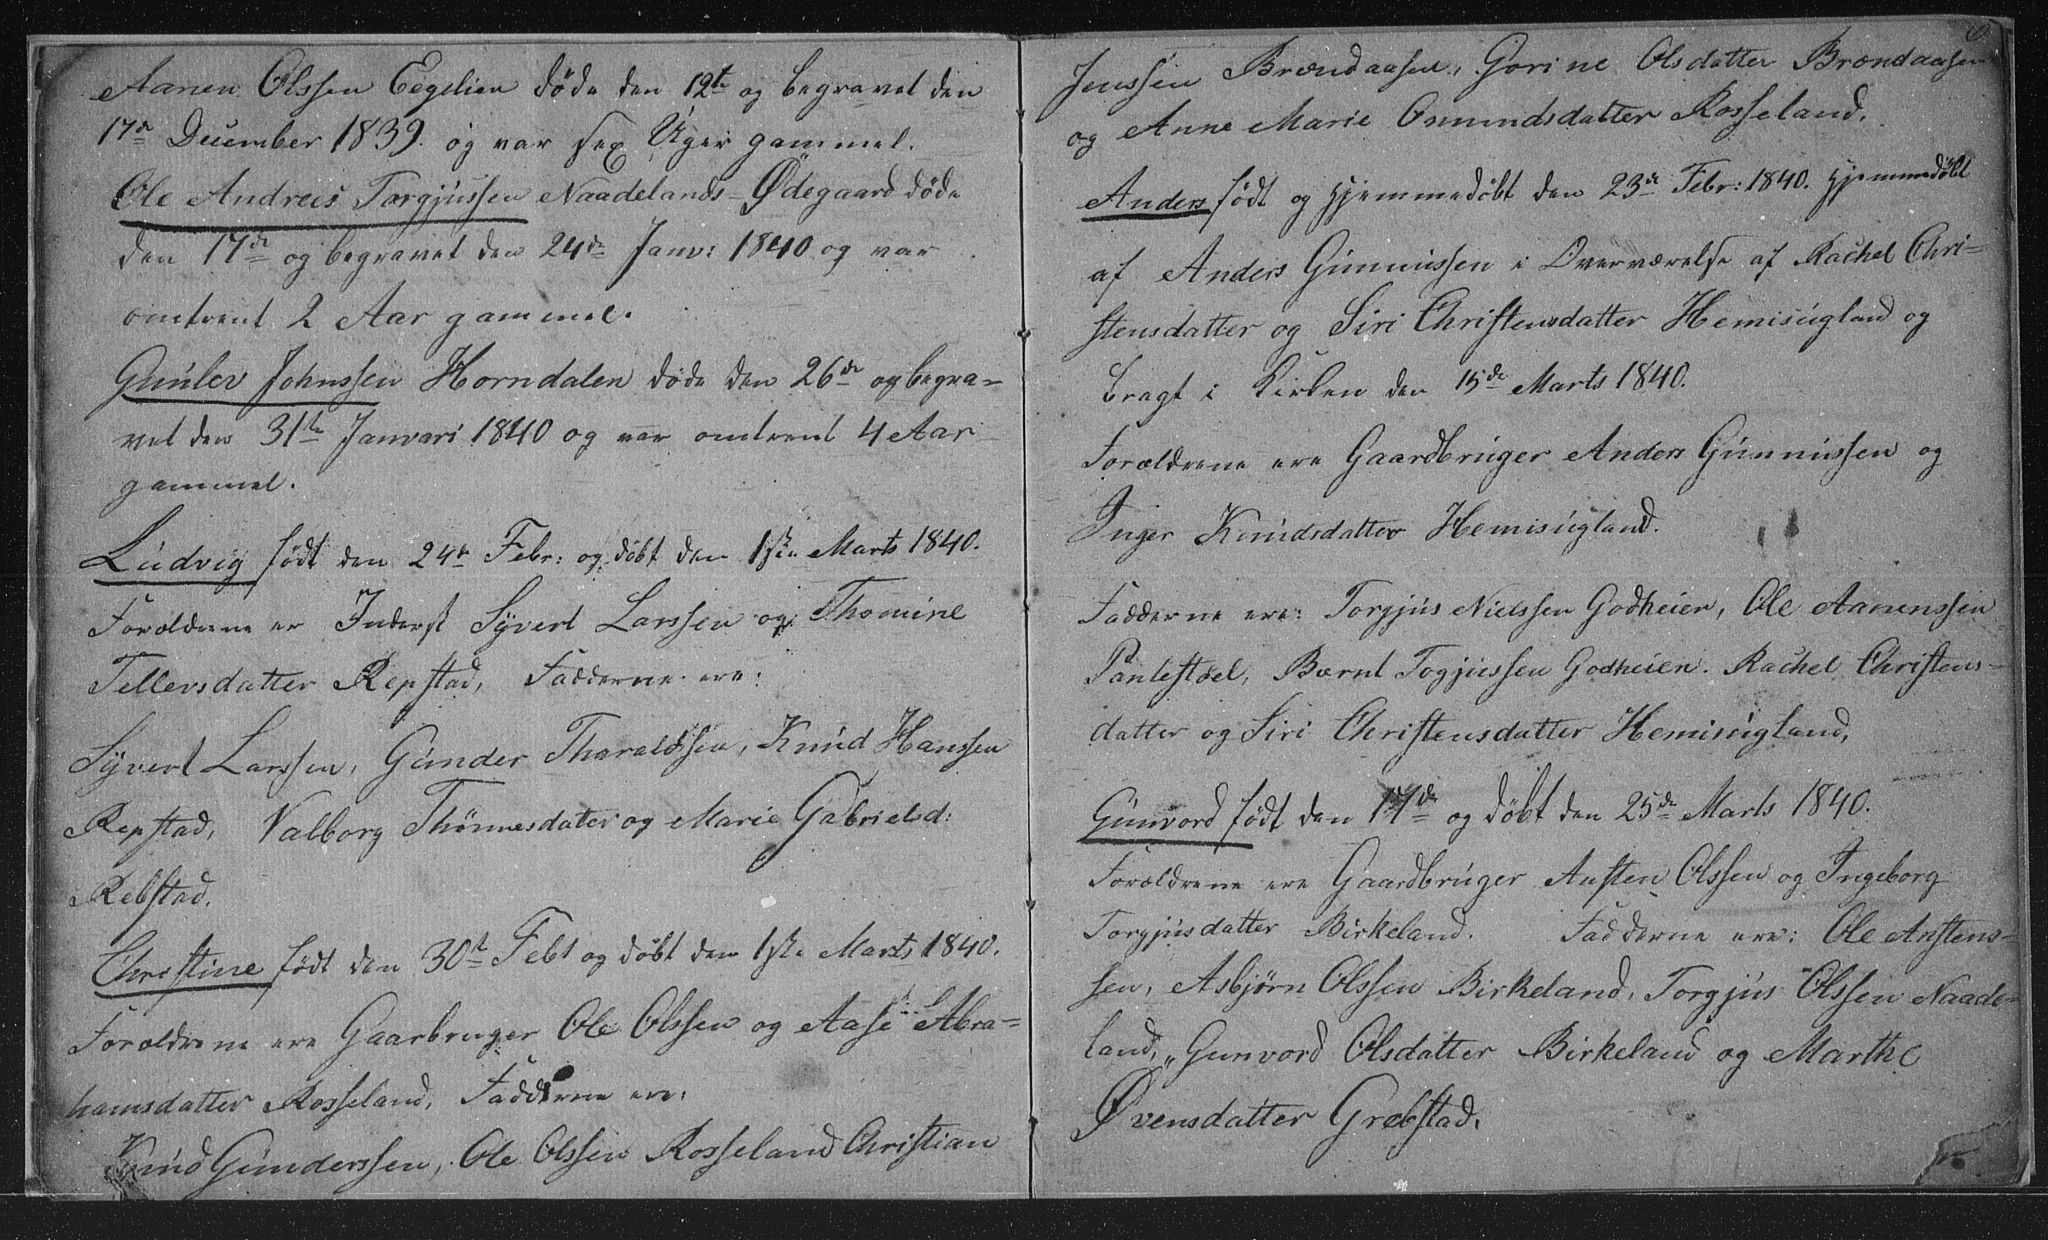 Aanen Olssen Eegelien døde den 12te og begravet den
17de December 1839. og var sex Uger gammel.
Ole Andreas Torgjussen Naadelands-Ødegaard døde
den 17de og begravet den 24de Janv: 1840 og var
omtrent 2 Aar gammel.
Gunlev Johnssen Horndalen døde den 26de og begra-
vet den 31te Janvari 1840 og var omtrent 4 Aar
gammel.
Ludvig født den 24de Febr: og døbt den 1ste Marts 1840.
Forældrene er Inderst Syvert Larssen og Thomine
Tellevsdatter Repstad, Fadderne ere:
Syvert Larssen, Gunder Tharaldssen, Knud Hanssen
Repstad, Valborg Thønnesdater og Marie Gabrielsd:
Rebstad.
Christine født den 30te Febr og døbt den 1ste Marts 1840.
Forældrene ere Gaarbruger Ole Olssen og Aase Abra-
hamsdatter Rosseland, Fadderne ere:
Knud Gunderssen, Ole Olssen Rosseland Christian
6
Jenssen Brændaasen, Gorine Olsdatter Brændaasen
og Anne Marie Omundsdatter Rosseland.
Anders født og hjemmedøbt den 23de Febr: 1840. hjemmedøbt
af Anders Gunnussen i Overværelse af Rachel Chri-
stensdatter og Siri Christensdatter Hemisugland og
bragt i Kirken den 15de Marts 1840.
Forældrene ere Gaardbruger Anders Gunnussen og
Inger Knudsdatter Hemisugland.
Fadderne ere: Torgjus Nielssen Godheien, Ole Aanenssen
Panlestøel, Bærnt Togjussen Godheien. Rachel Christens-
datter og Siri Christensdatter Hemisugland,
Gunvord født den 17de og døbt den 25de Marts 1840.
Forældrene ere Gaardbruger Austen Olssen og Ingeborg
Torgjusdatter Birkeland. Fadderne ere: Ole Austens-
sen, Asbjørn Olssen Birkeland, Torgjus Olssen Naade-
land, Gunvord Olsdatter Birkeland og Marthe
Øvensdatter Grebstad.